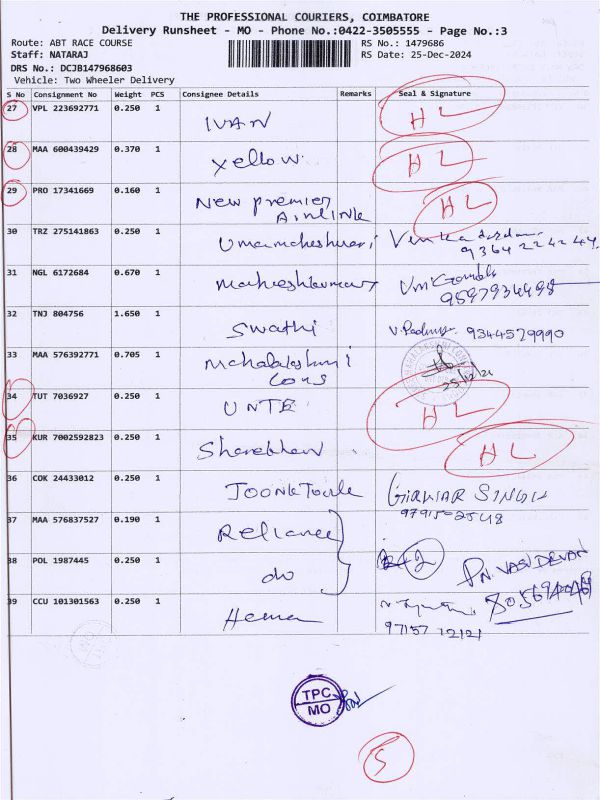 THE PROFESSIONAL COURIERS, COIMBATORE
Delivery Runsheet - MO - Phone No.:0422-3505555 - Page No.:3
Route: ABT RACE COURSE
RS No.: 1479686
Staff: NATARAJ
RS Date: 25-Dec-2024
DRS No.: DCJB147968603
Vehicle: Two Wheeler Delivery
S No Consignment No Weight PCS Consignee Details Remarks Seal & Signature
27 VPL 223692771 0.250 1 IVAN HL
28 MAA 600439429 0.370 1 Yellow HL
29 PRO 17341669 0.160 1 New premier HL
30 TRZ 275141863 0.250 1 Umamaheshwari
31 NGL 6172684 0.670 1
9597934498
32 TNJ 804756 1.650 1 Swathi 9344579990
33 MAA 576392771 0.705 1
Cons 25/12/24
34 TUT 7036927 0.250 1 UNTE HL
35 KUR 7002592823 0.250 1 Sharekhan HL
36 COK 24433012 0.250 1 GIRWAR SINGH
37 MAA 576837527 0.190 1 Reliance
38 POL 1987445 0.250 1 do P.N. VASUDEVAN
39 CCU 101301563 0.250 1 Hema
97157 12121
TPC
MO
5